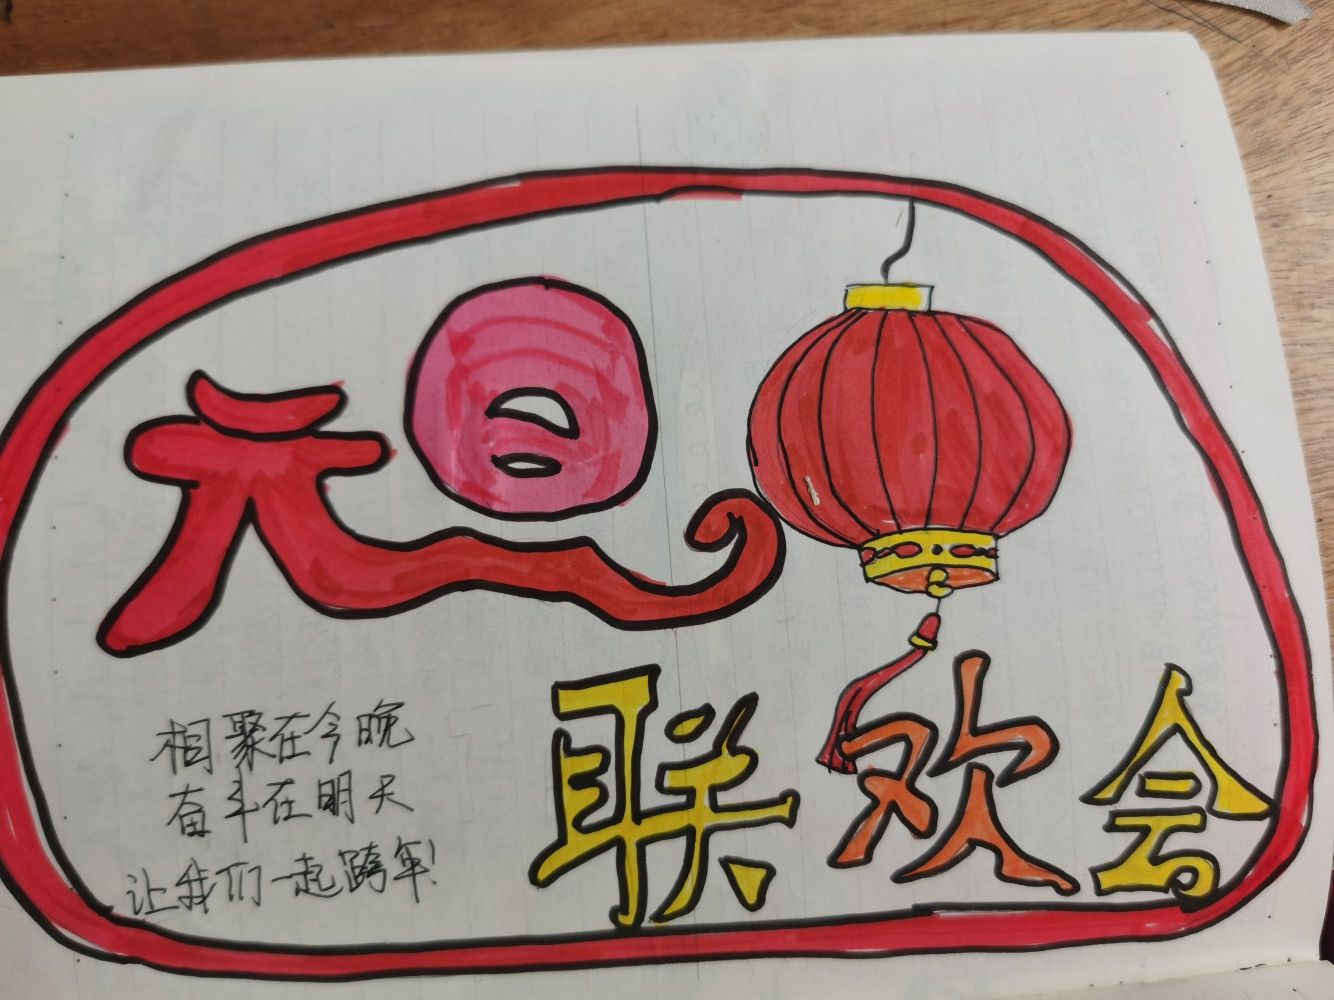 元旦
联欢会
相聚在今晚
奋斗在明天
让我们一起跨年!